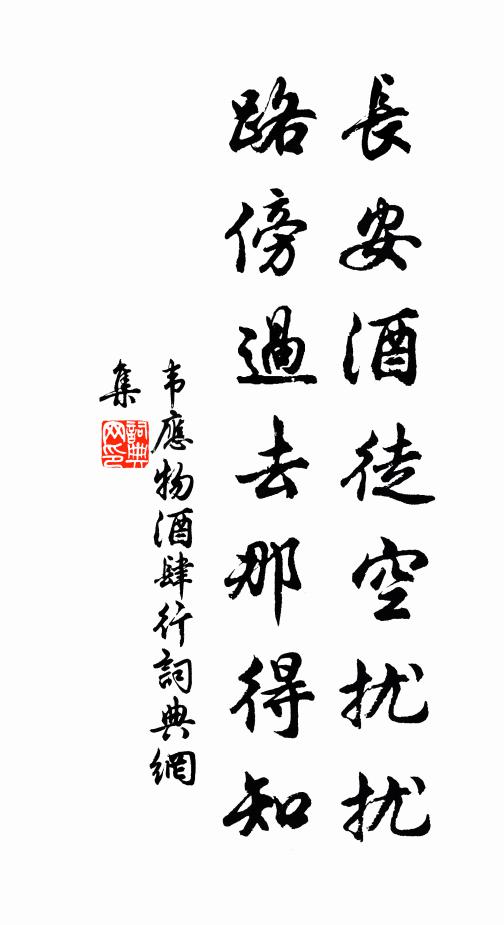 長安酒徒空扰扰
路傍過去那得知
韦應物酒肆行詞典網
集
詞典
网印